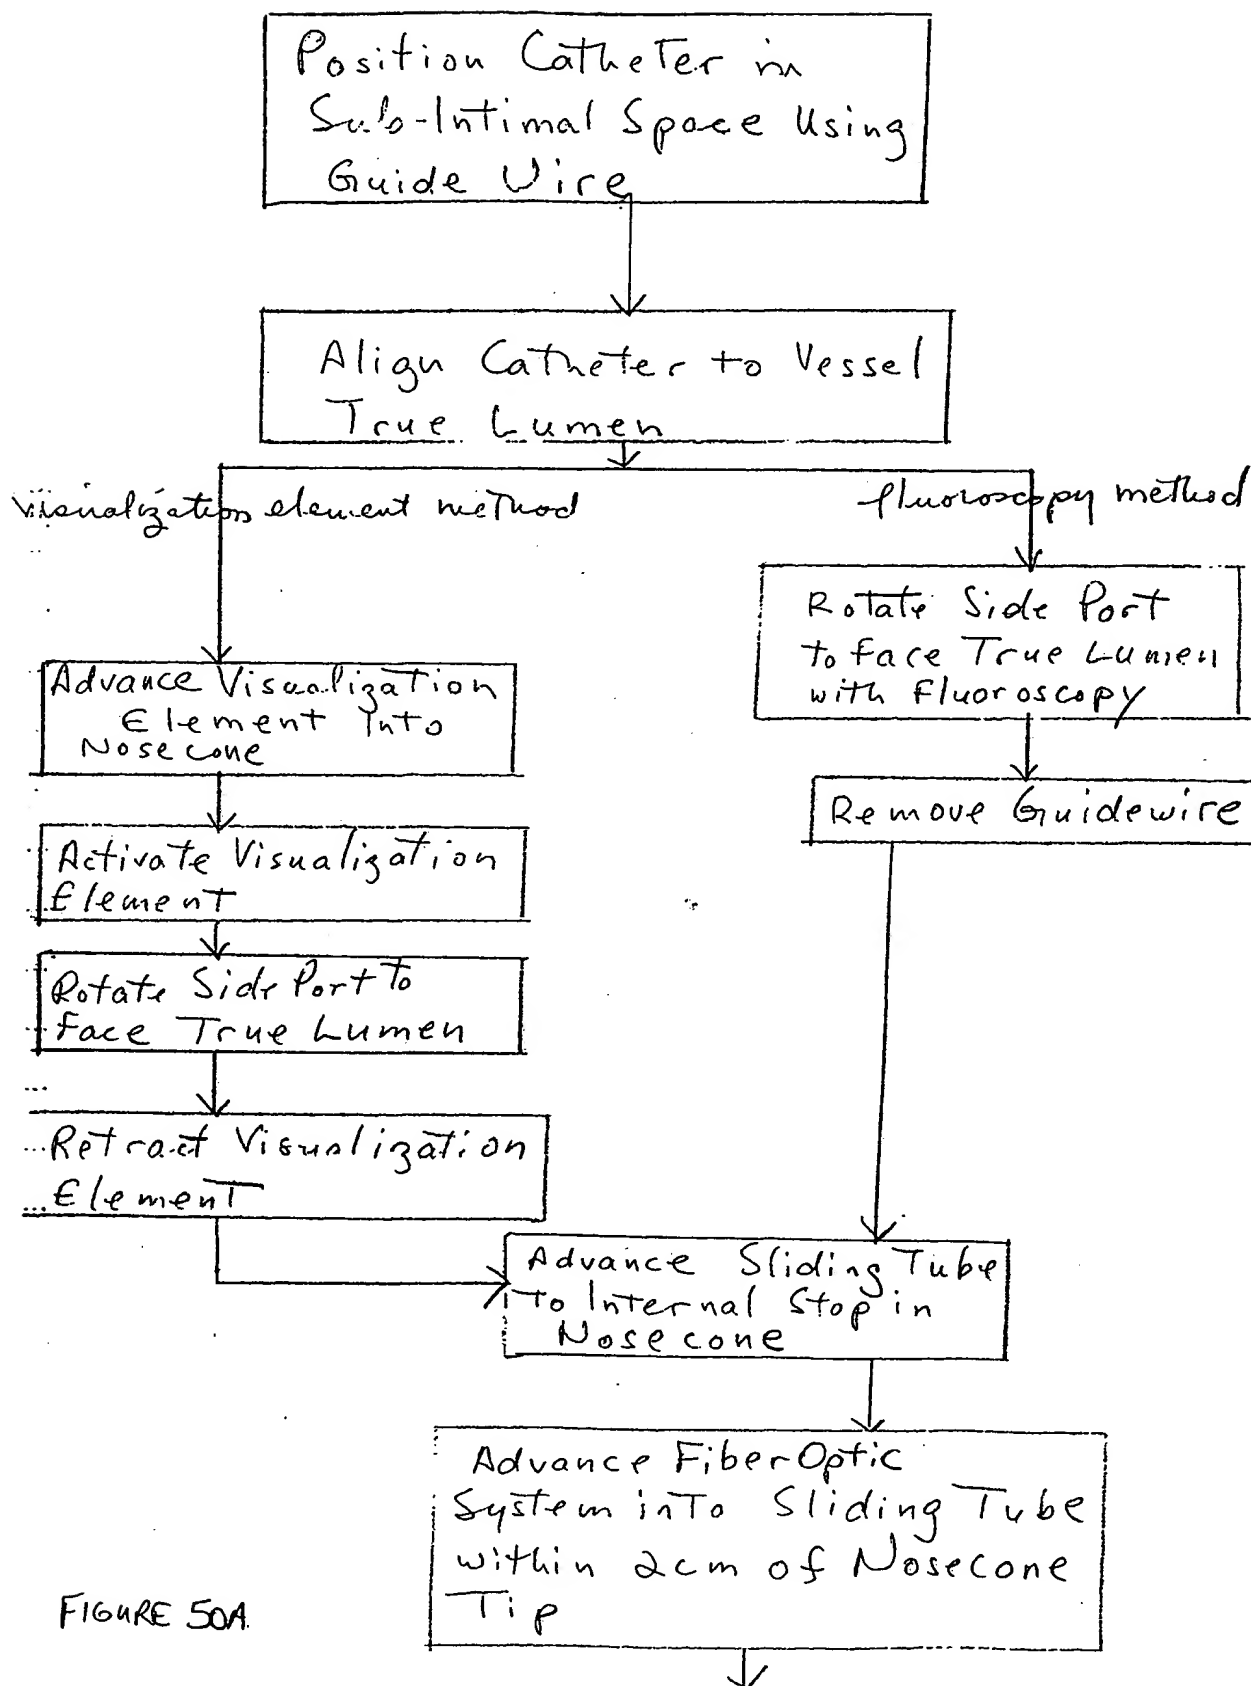 Position Catheter in
Sub-Intimal Space Using
Guide Wire
Align Catheter to Vessel
True Lumen
visualization element method
fluoroscopy method
Advance Visualization
Element Into
Nosecone
Activate Visualization
Element
Rotate Side Port to
Face True Lumen
Retract Visualization
Element
Rotate Side Port
to Face True Lumen
with Fluoroscopy
Remove Guidewire
Advance Sliding Tube
to Internal Stop in
Nosecone
Advance Fiber Optic
System into Sliding Tube
within 2cm of Nosecone
Tip
FIGURE 50A